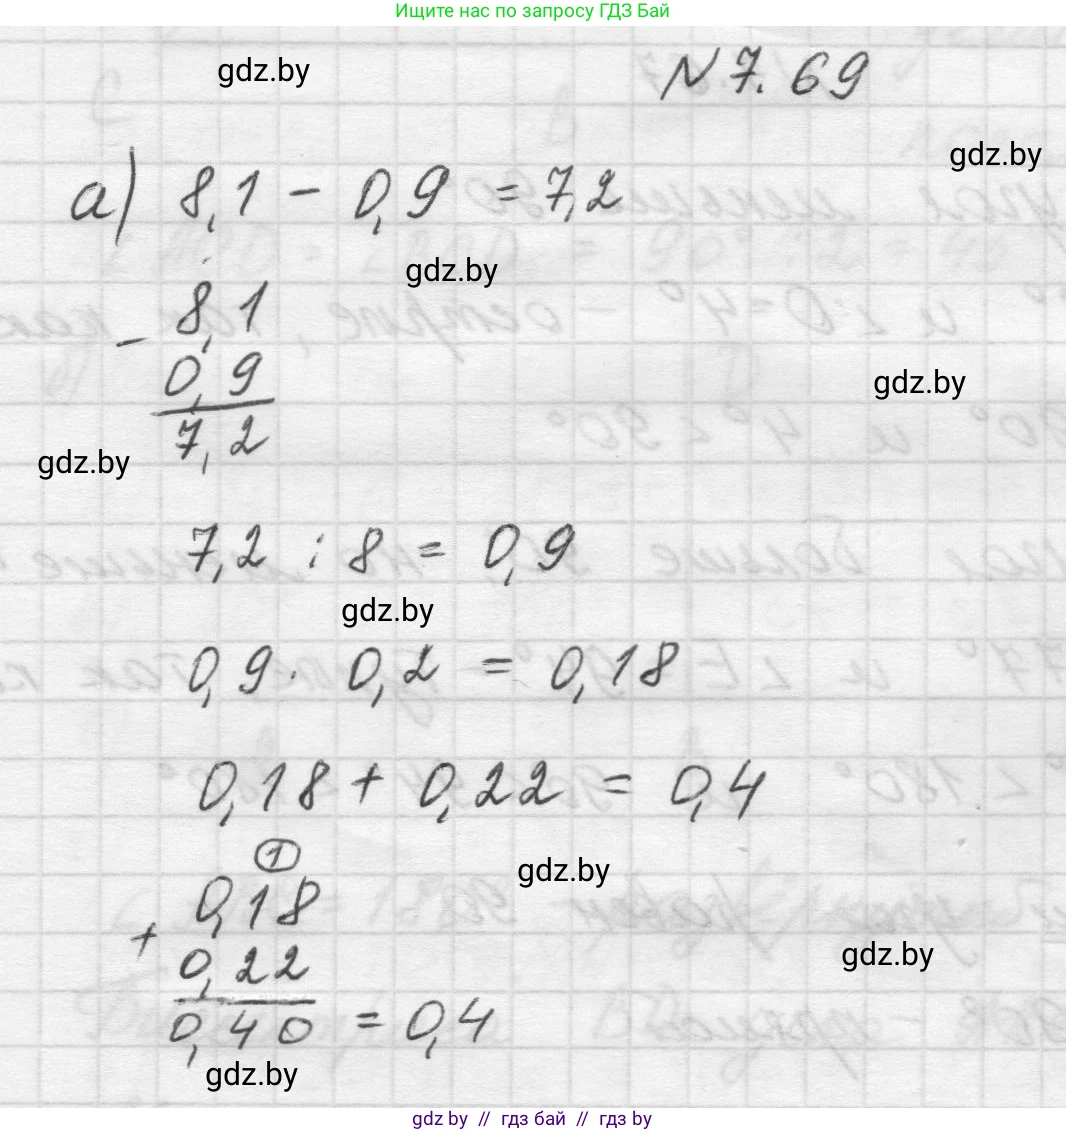 Ищите нас по запросу ГДЗ Бай
gdz.by
№ 7.69
gdz.by
а) 8,1 - 0,9 = 7,2
gdz.by
- 8,1
0,9
7,2
gdz.by
gdz.by
7,2 : 8 = 0,9
gdz.by
0,9 · 0,2 = 0,18
0,18 + 0,22 = 0,4
1
gdz.by
+ 0,18
0,22
gdz.by
0,40 = 0,4
gdz.by
gdz by // гдз бай // гдз by